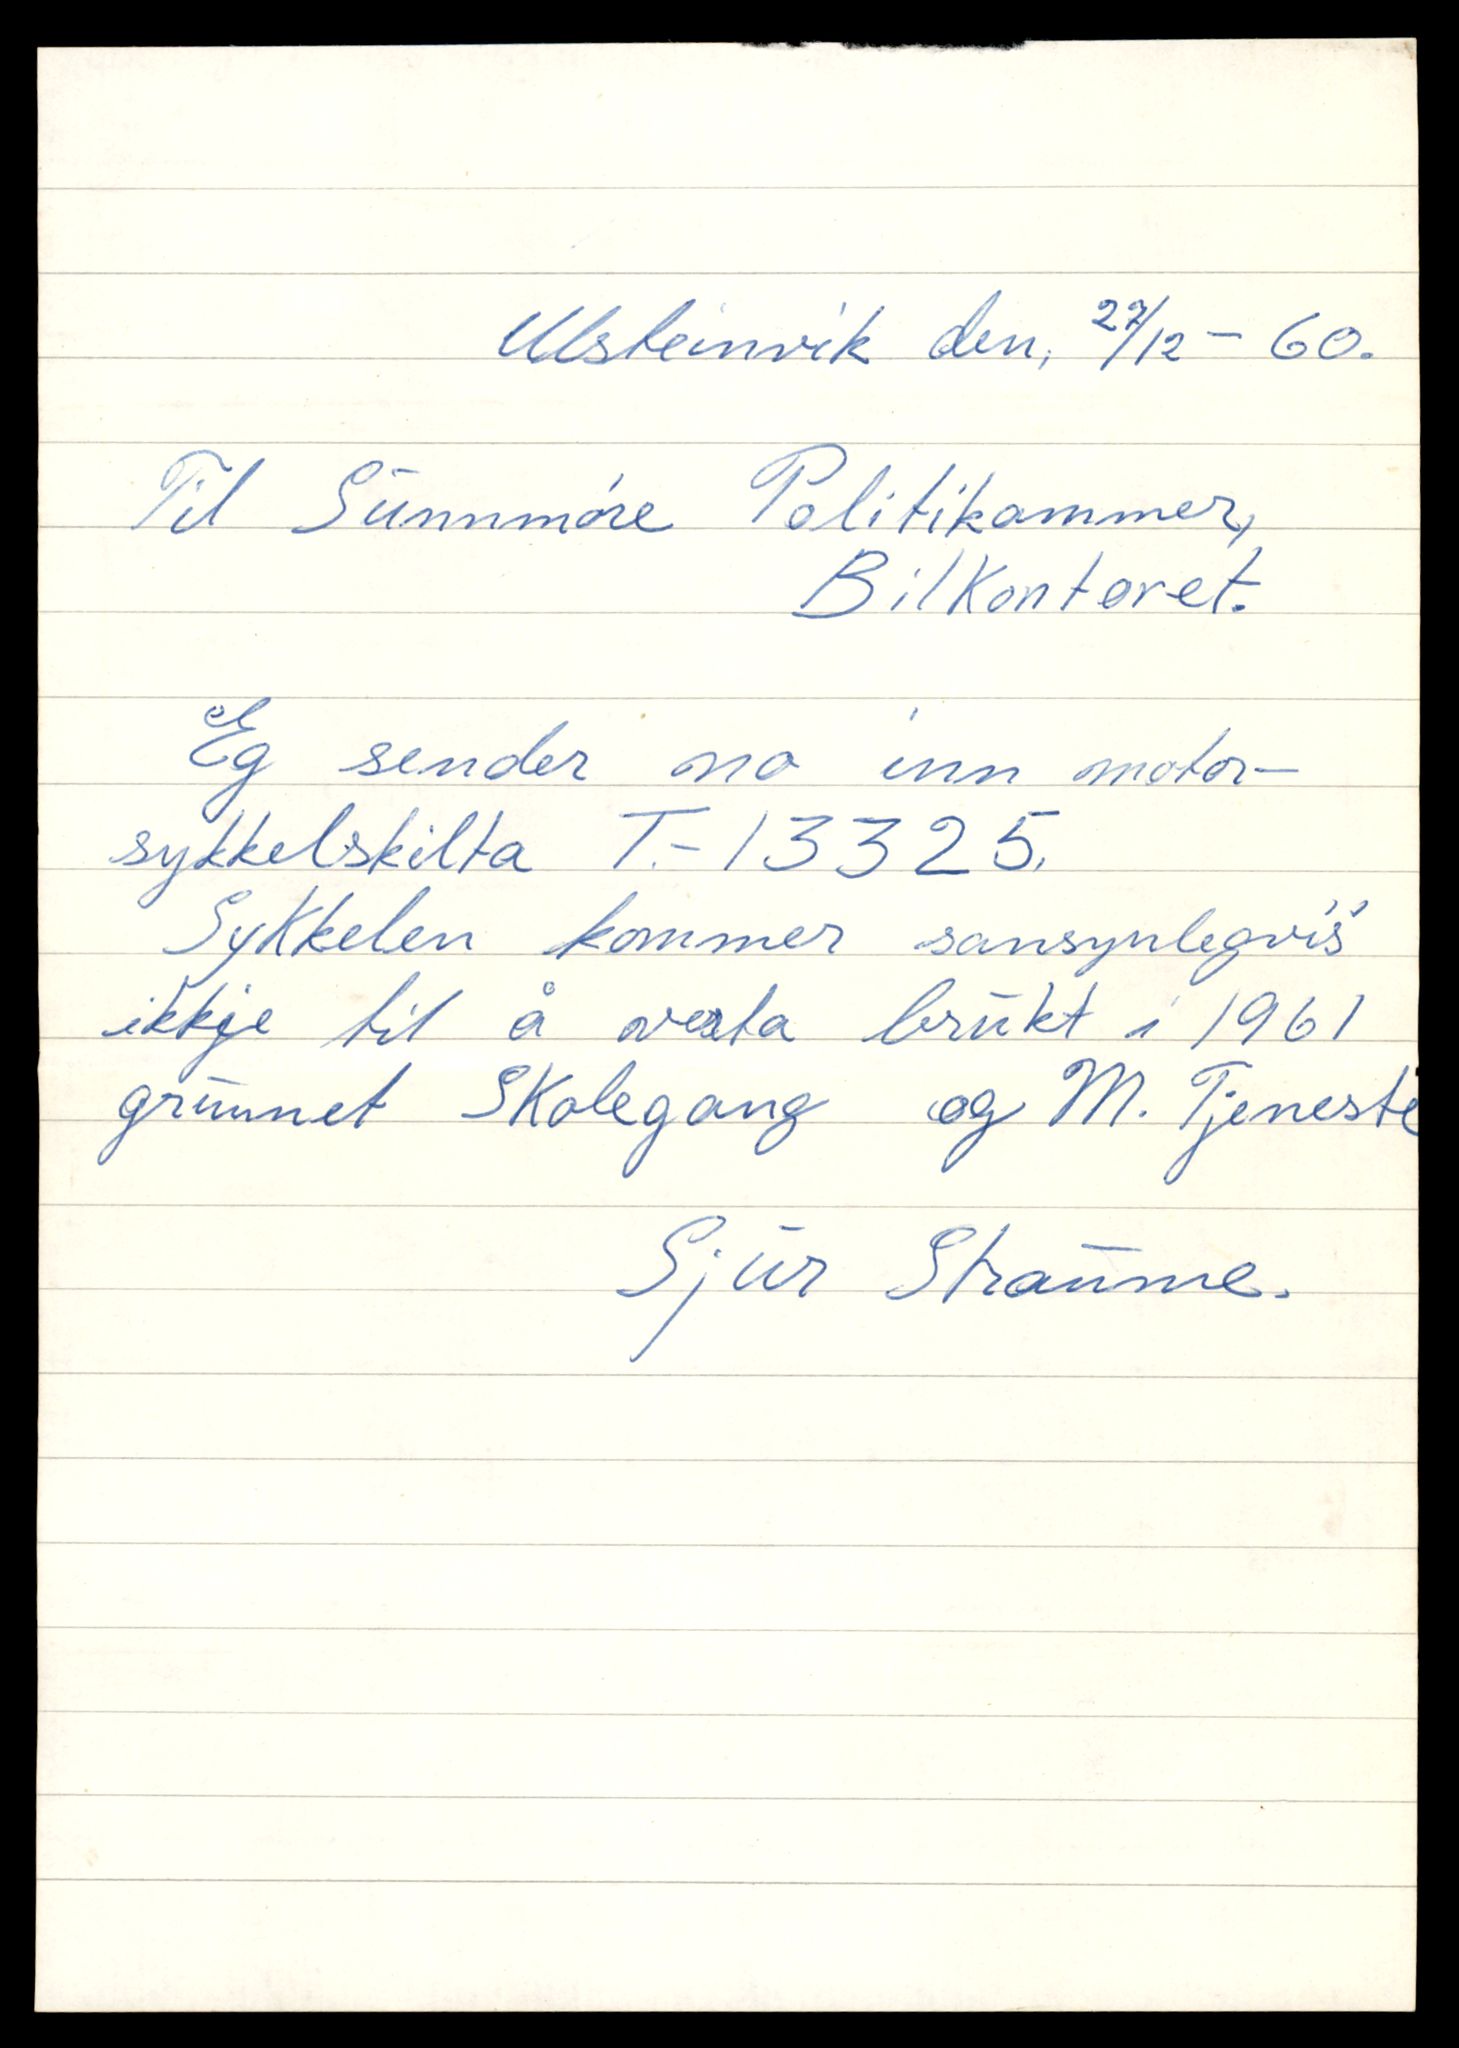 Ulsteinvik den, 27/12 - 60.
Til Sunnmöre Politikammer,
Bilkontoret.
Eg sender no inn motor-
sykkelskilta T.- 13325.
Sykkelen kommer sansynlegvis
ikkje til å verta brukt i 1961
grunnet Skolegang og M. Tjeneste
Sjur Straume.